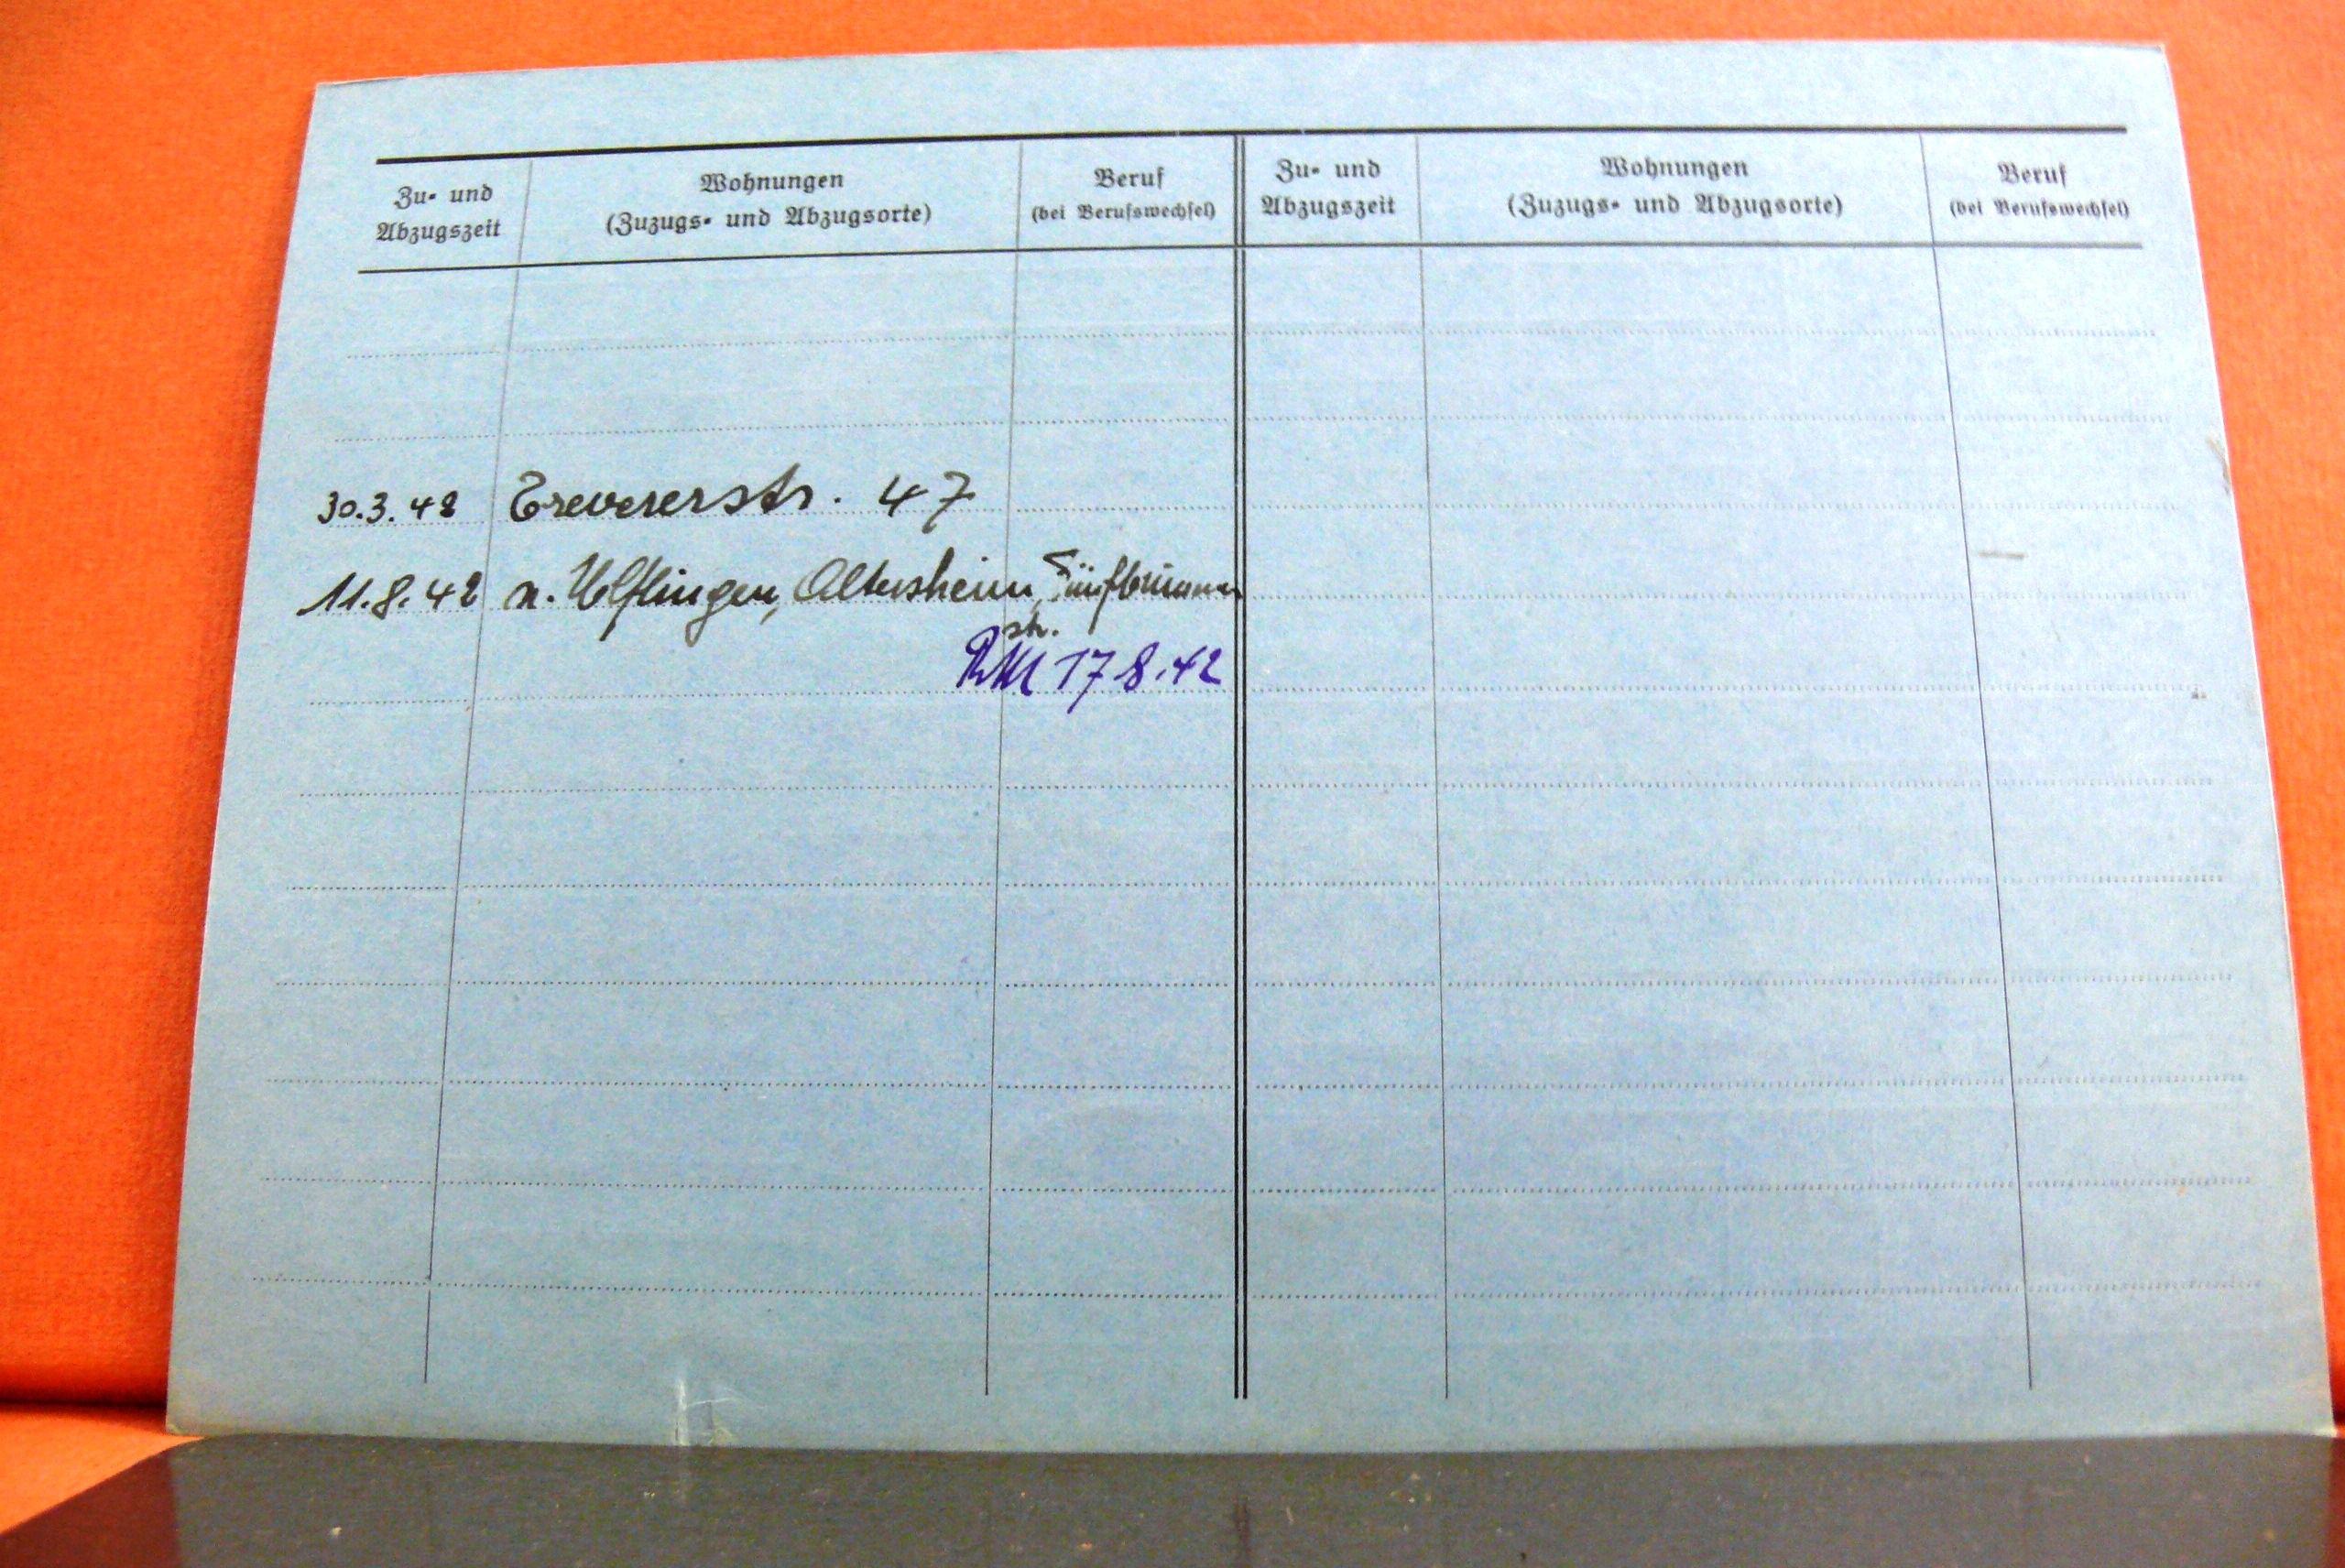 Zu- und Abzugszeit
Wohnungen
(Zuzugs- und Abzugsorte)
Beruf
(bei Berufswechsel)
Zu- und Abzugszeit
Wohnungen
(Zuzugs- und Abzugsorte)
Beruf
(bei Berufswechsel)
30.3.42 Trevererstr. 47
11.8.42 n. Ulflingen, Altersheim, Fünfbrunnen
str.
17 8.42